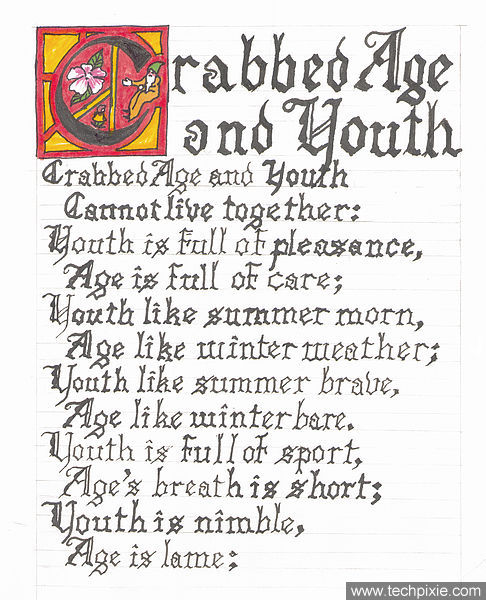 Crabbed Age
and Youth
Crabbed Age and Youth
Cannot live together:
Youth is full of pleasance,
Age is full of care;
Youth like summer morn,
Age like winter weather;
Youth like summer brave,
Age like winter bare.
Youth is full of sport,
Age's breath is short;
Youth is nimble,
Age is lame;
www.techpixie.com